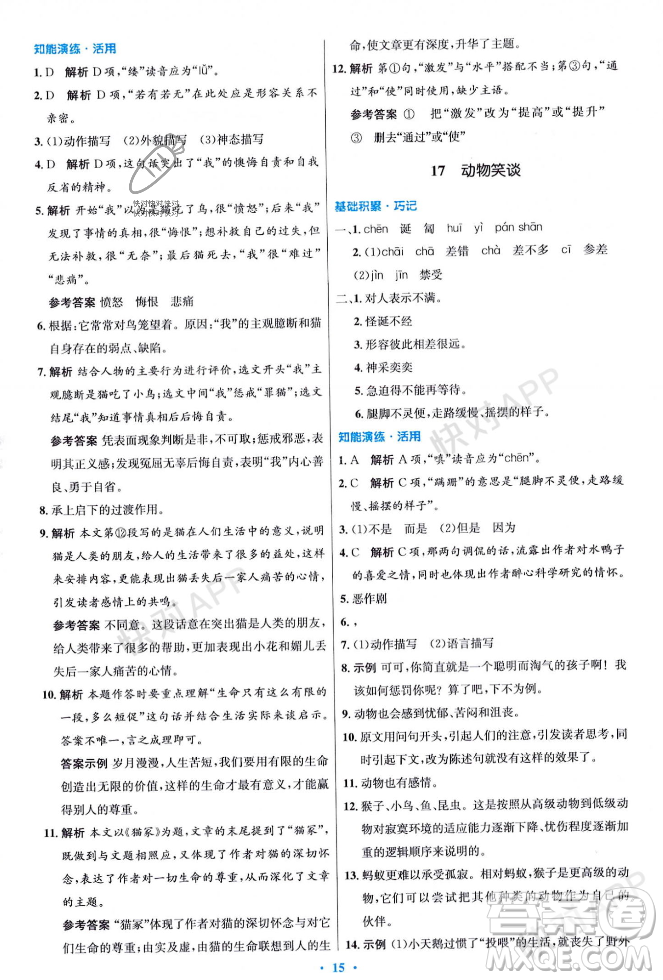 知能演练·活用
1. D　解析 D项,“缕”读音应为“lǚ”。
2. D　解析 D项,“若有若无”在此处应是形容关系不
亲密。
3. (1)动作描写　(2)外貌描写　(3)神态描写
4. D　解析 D项,这句话突出了“我”的懊悔自责和
反省的精神。
5. 解析 开始“我”以为是猫吃了鸟,很“愤怒”;后来“我”
发现了事情的真相,很“悔恨”;想补救自己的过失,但
无法补救,很“无奈”;最后猫死去,“我”很“难过”“
“悲痛”。
参考答案 愤怒　悔恨　悲痛
6. 根据:它常常对鸟笼望着。原因:“我”的主观臆断和猫
自身存在的弱点、缺陷。
7. 解析 结合人物的主要行为进行评价,选文开头“我”主
观臆断是猫吃了小鸟;选文中“我”惩戒“罪猫”;选文
结尾“我”知道事情真相后自责。
参考答案 凭表面现象判断是非,惩戒邪恶,表现武断;
发现冤屈后忏悔与自责,表现了“我”的内心善
良、勇于自省。
8. 承上启下的过渡作用。
9. 解析 本文第⑫段写的是猫在人们生活中的意义,说明
动猫是人类的朋友,给人的生活带来了许多乐趣,这样
来安排内容,更能突出失去猫后一家人痛苦的心情,
引发读者情感上的共鸣。
参考答案 不同意。这段话意在突出猫是人类的朋友,
给人类带来了很多生活乐趣,更能表现出小花和媚儿丢
失后一家人痛苦的心情。
10. 解析 本题作答时要重点理解“生命只占这有限的
一段,多么短促”这句话并结合生活实际来谈启示。
答案不唯一,言之成理即可。
答案示例 岁月漫漫,人生苦短,我们要用有限的生命
创造出无限的价值,这样的生命才最有意义,才能赢
得别人的尊重。
11. 解析 本文以《猫冢》为题,文章的末尾提到了“猫冢”,
既与文题相照应,又体现了作者对猫的深切怀
念,表现了对生命的尊重。由对猫的怀念联想到人的
生命,又体现了深化主题的作用。
参考答案 “猫冢”体现了作者对猫的深切怀念与对它
们生命的尊重,由实及虚,由猫的生命联想到人的生
命,使文章更有深度,升华了主题。
12. 解析 第①句,“激发”与“水平”搭配不当;第③句,“通
过”和“使”同时使用,缺少主语。
参考答案 ①　把“激发”改为“提高”或“提升”
③　删去“通过”或“使”
17　动物笑谈
基础积累·巧记
一、1. chēn　诞　匐　huī　yì　pán shān
2. (1)chāi　chā　差错　chà　差不多　cī　参差
(2)jìn　jīn　禁受
二、1. 对人表示不满。
2. 怪诞不经
3. 形容彼此相差很多。
4. 神采奕奕
5. 急迫得不能再等。
6. 腿脚不灵便,走路缓慢、摇摆的样子。
知能演练·活用
1. A　解析 A项,“嗔”读音应为“chēn”。
2. C　解析 C项,“蹒跚”的意思是“腿脚不灵便,走路缓
慢、摇摆的样子”。
3. (1)不是　而是　(2)但是　因为
4. C　解析 C项,那两句调侃的话,流露出作者对水鸭子
的喜爱之情,同时也体现出作者醉心科学研究的情怀。
5. 恶作剧
6. ,
7. (1)动作描写　(2)语言描写
8. 示例 可可,你简直就是一个聪明而淘气的孩子啊!我
该如何惩罚你呢?算了吧,下不为例。
9. 动物也会感到忧郁、苦闷和沮丧。
10. 原文用问句开头,引起人们注意,引发读者思考,同时
引起下文,改为陈述句就没有这一效果。
11. 动物也有感情。
12. 猴子、小鸟、鱼、昆虫。这是按照从高级动物到低级动
物对寂寞环境的适应能力逐渐下降、忧伤程度逐渐加
重的逻辑顺序来说明的。
13. 蚂蚁更难以承受孤寂。相对蚂蚁,猴子是更高级的动
物,它们可以尝试把其他种类的动物作为自己的
伙伴。
14. 示例 (小天鹅过惯了“投喂”的生活,就丧失了野外
15
快对快对练习
快对快对练习
快对APP
快对APP
快对APP
答案圈
MXQE.COM